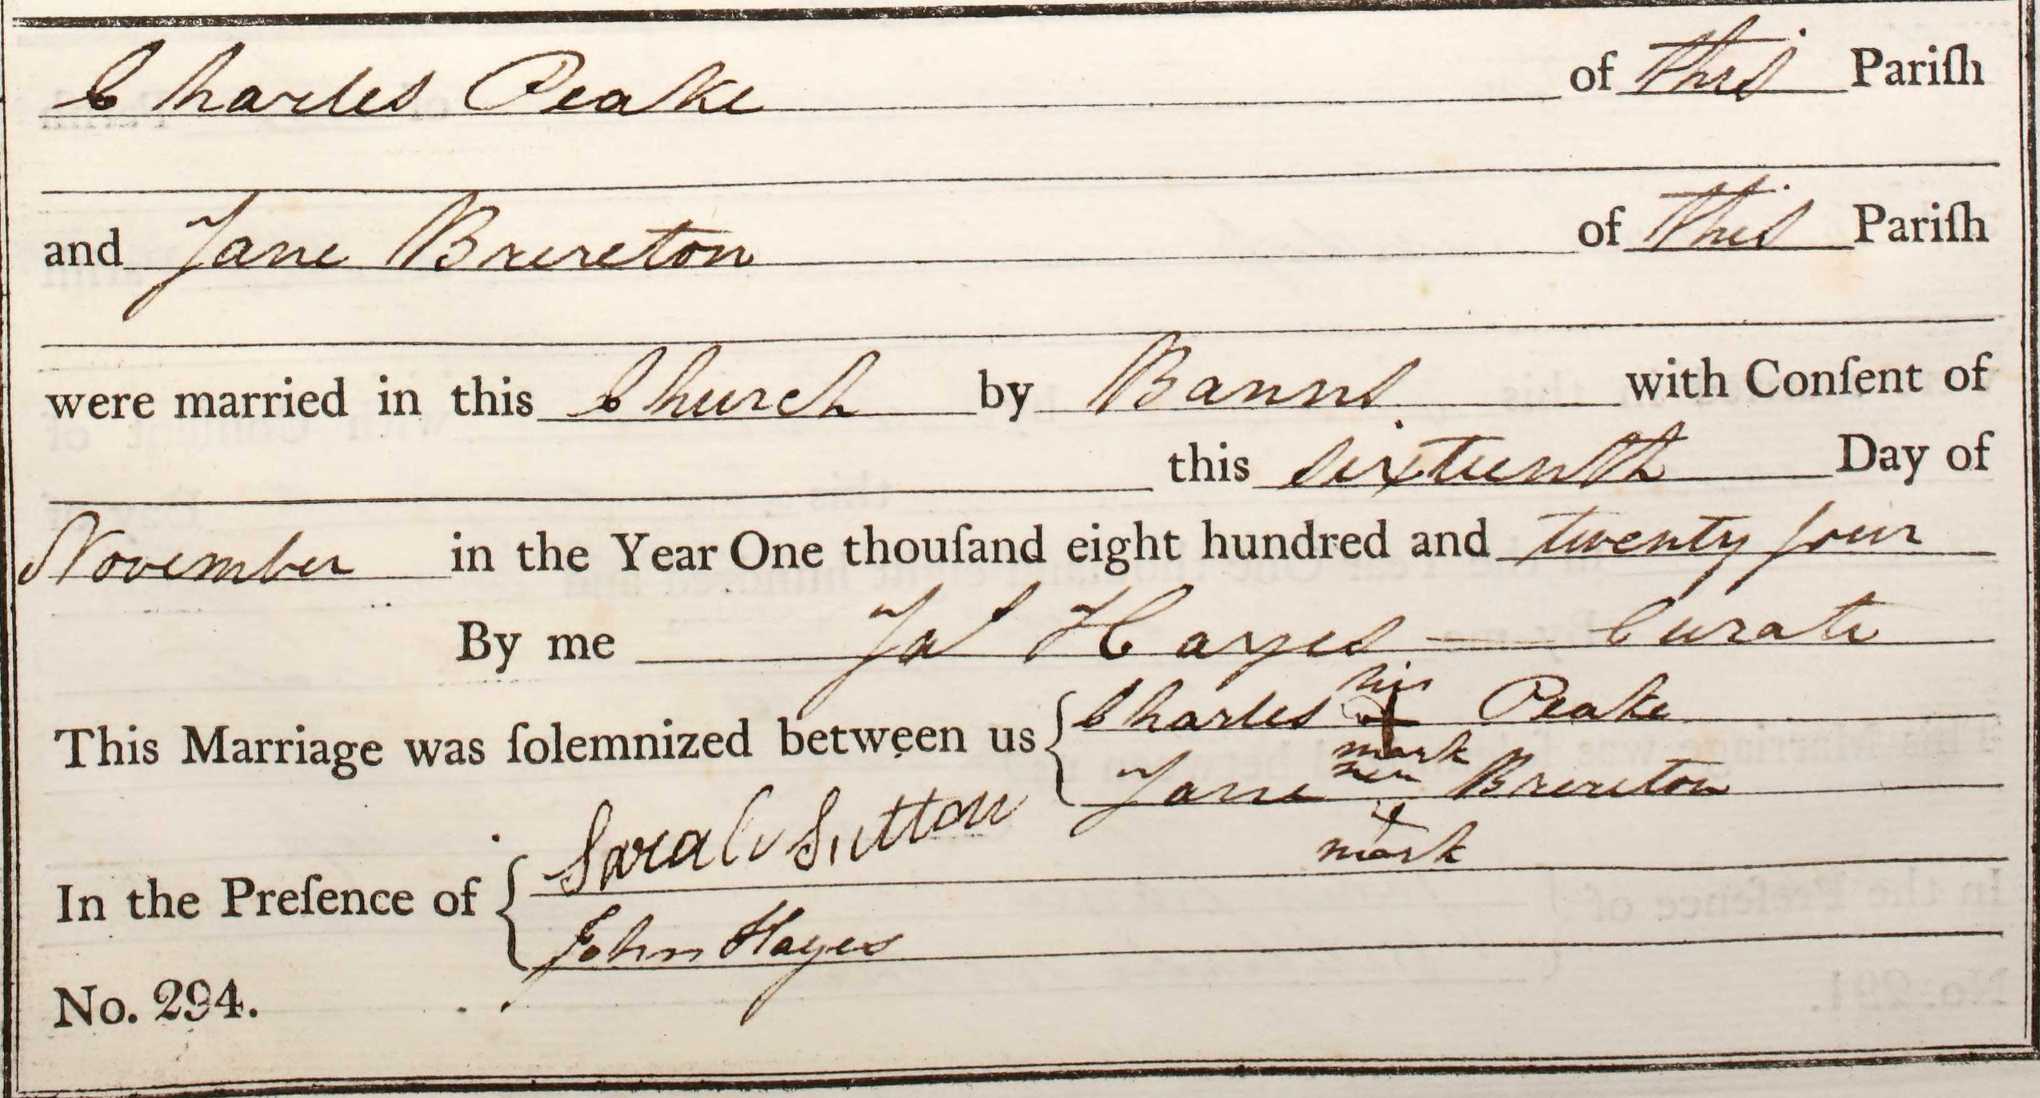 Charles Peake of this Pariſh
and Jane Brereton of this Pariſh
were married in this Church by Banns with Conſent of
this sixteenth Day of
November in the Year One thouſand eight hundred and twenty four
By me Jas Hayes — Curate
This Marriage was ſolemnized between us { Charles his + Peake
mark
Jane her + Brereton
mark
In the Preſence of { Sarah Sutton
John Hayes
No. 294.